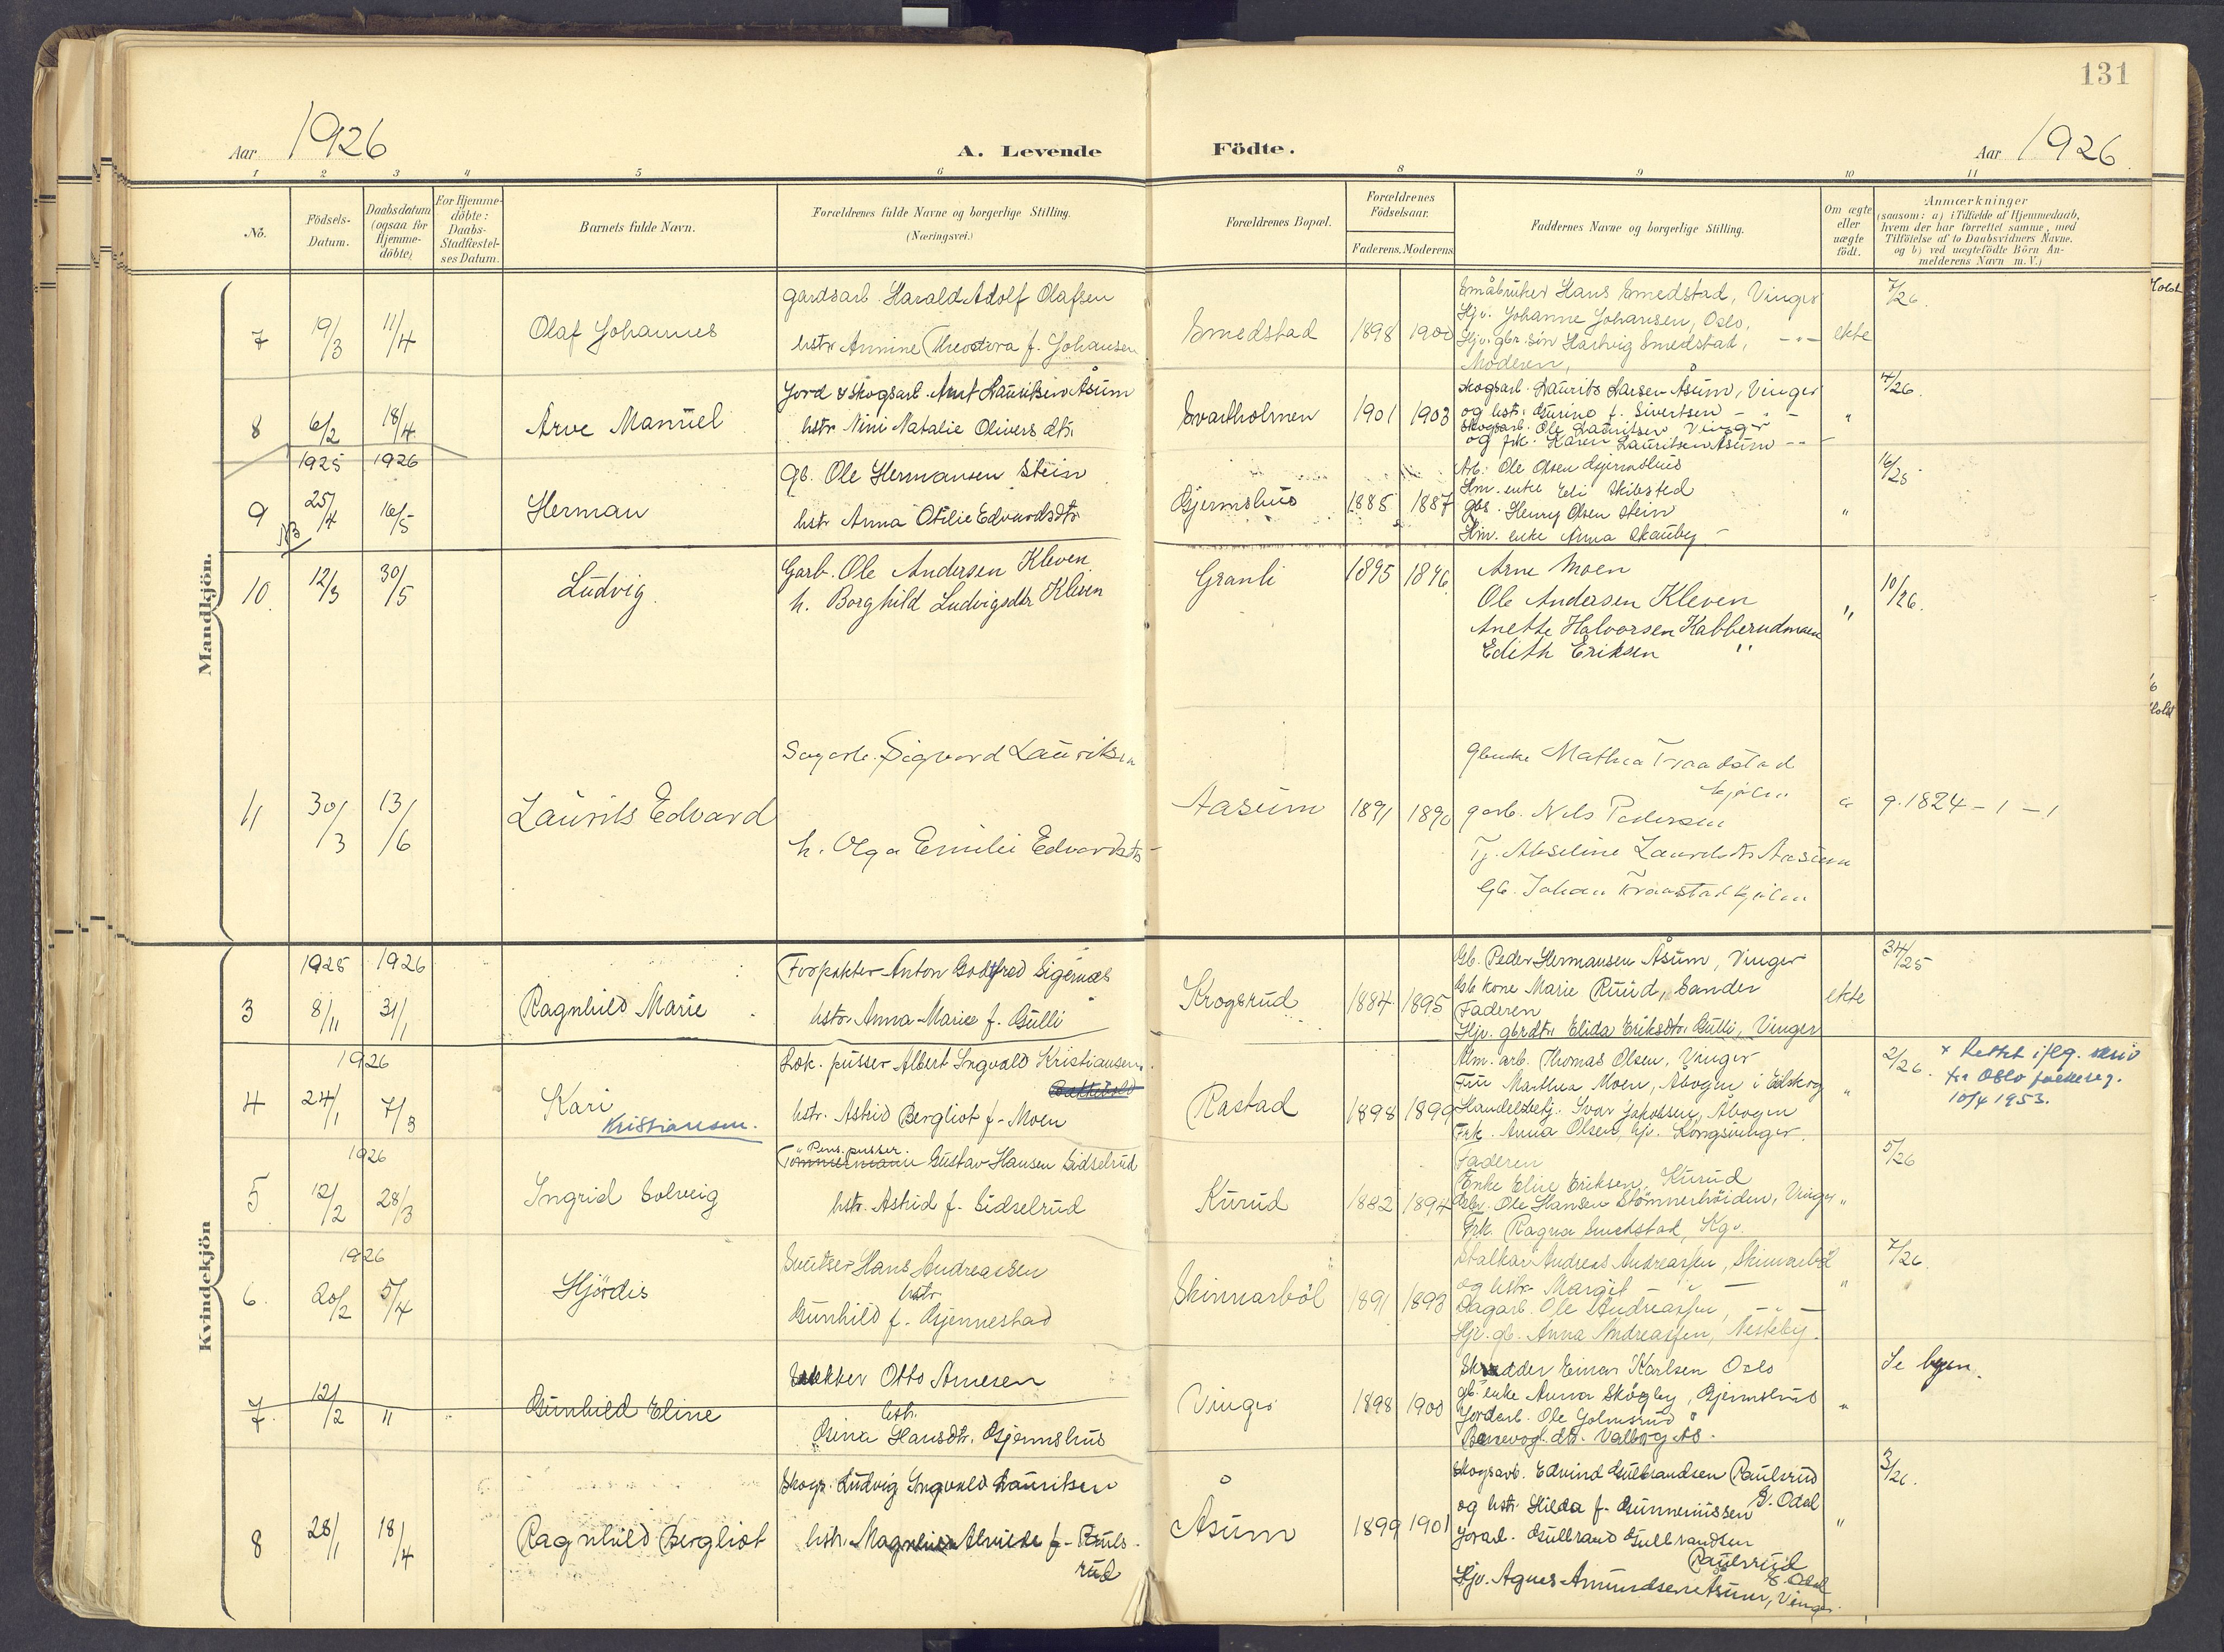 131
Aar 1926
A. Levende Födte.
Aar 1926
1 2 3 4 5 6 8 9 10 11
No.
Födsels-Datum.
Daabsdatum (ogsaa for Hjemme-döbte)
For Hjemme-döbte: Daabs-Stadfæstel-ses Datum.
Barnets fulde Navn.
Forældrenes fulde Navne og borgerlige Stilling. (Næringsvei.)
Forældrenes Bopæl.
Forældrenes Födselsaar.
Faderens. Moderens
Faddernes Navne og borgerlige Stilling.
Om ægte eller uægte födt.
Anmærkninger
(saasom: a) i Tilfælde af Hjemmedaab,
hvem der har forrettet samme, med
Tilföielse af to Daabsvidners Navne.
og b) ved uægtefödte Börn An-
melderens Navn m. V.)
Mandkjön.
7 19/3 11/4 Olaf Johannes
gardsarb. Harald Adolf Olafsen
hstr Annine Theodora f. Johansen
Smedstad 1898 1900
Småbruker Hans Smedstad, Vinger
Hjv. Johanne Johansen, Oslo,
Hjv. gbr. sön Hartvig Smedstad, -"-
Moderen,
ekte
7/26.
8 6/2 18/4 Arve Manuel
Jord & Skogsarb. Knut Lauritsen Åsum
hstr Nini Natalie Olivers dtr.
Svartholmen 1901 1903
Skogsarb. Laurits Larsen Åsum, Vinger
og hstr. Gurine f. Sivertsen - " -
Skogsarb. Ole Lauritsen Vinger
og frk. Karen Lauritsen Åsum - -
"
4/26.
1925 1926
9 25/4 16/5 Herman
NB
Gb. Ole Hermansen Stein
hstr Anna Otilie Edvardsdtr
Gjermshus 1885 1887
Arb. Ole Olsen Gjermshus
Hm. enke Eli Skibsted
gbs. Henry Olsen Stein
Hm. enke Anna Skauby -
"
16/25
10. 12/3 30/5 Ludvig.
Garb. Ole Andersen Kleven
h. Borghild Ludvigsdtr Kleven
Granli 1895 1896
Arne Moen
Ole Andersen Kleven
Anette Halvorsen Kabberudmoen
Edith Eriksen "
"
10/26.
11 30/3 13/6 Laurits Edvard
Sagarb. Sigvard Lauritsen
h. Olga Emilie Edvardsdtr
Aasum 1891 1890
Gbenke Mathea Traastad
garb. Nils Pedersen
Gb. Johan Traastad
g. 1824 - 1 - 1
Kvindekjön
1925 1926
3 8/11 31/1 Ragnhild Marie
Forpakter Anton Godtfred Sigernæs
hstr. Anna Marie f. Gulli
Krogsrud 1884 1895
Gb. Peder Hermansen Åsum, Vinger
Gb kone Marie Ruud, Sander
Faderen
Hjv. gbrdtr. Elida Eriksdtr. Gulli, Vinger
ekte
34/25
1926
4 24/1 7/3 Kari
Kristiansen.
Lok. pusser Albert Ingvald Kristiansen.
hstr. Astrid Bergliot f. Moen
Rastad 1898 1899
Alm. arb. Thomas Olsen, Vinger
Fru Marthea Moen, Åbogen i Eidskog
Handelsbetj. Ivar Jakobsen, Åbogen
Frk. Anna Olsen, hjv. Kongsvinger.
"
2/26.
x Rettet iflg. skriv
fra Oslo folkereg.
10/4 1953.
1926
5 12/2 28/3 Ingrid Solveig
" Pens. pusser.
Tömmermann Gustav Hansen Sidselrud
hstr. Astrid f. Sidselrud
Kurud 1882 1894
Faderen
Enke Elise Eriksen, Kurud
Gbr. Ole Hansen Stömnerhöiden, Vinger
Frk. Ragna Smedstad, Kgv.
"
5/26
1926
6. 20/2 5/4 Hjördis
Sveitser Hans Andreassen
hstr
Gunhild f. Gjennestad
Skinnarböl 1891 1893
Stalkar Andreas Andreassen, Skinnarböl
og hstr. Margit - " -
Dagarb. Ole Andreassen, - " -
Hjv. gb. Anna Andreassen, Nesteby.
"
7/26.
7. 12/2 " " Gunhild Eline
Otto Arnesen
hstr.
Gina Hansdtr. Gjermshus
Vinger 1898 1900
Skredder Einar Karlsen Oslo
gb. enke Anna Skögby, Gjermshus
Jordarb. Ole Golmsrud "
Banevogt. dtr. Valborg As.
"
Se byen.
8 28/1 18/4 Ragnhild Bergliot
Skogs. Ludvig Ingvald Lauritsen
hstr. Magnhild Almide f. Pauls-
rud
Åsum 1899 1901
Skogsarb. Edvind Gulbrandsen Paulsrud
og hstr. Hilda f. Gunneriussen S. Odal
Jorarb. Gulbrand Gulbrandsen
Paulsrud
S. Odal
Hjv. Agnes Amundsen Åsum, Vinger.
"
3/26.